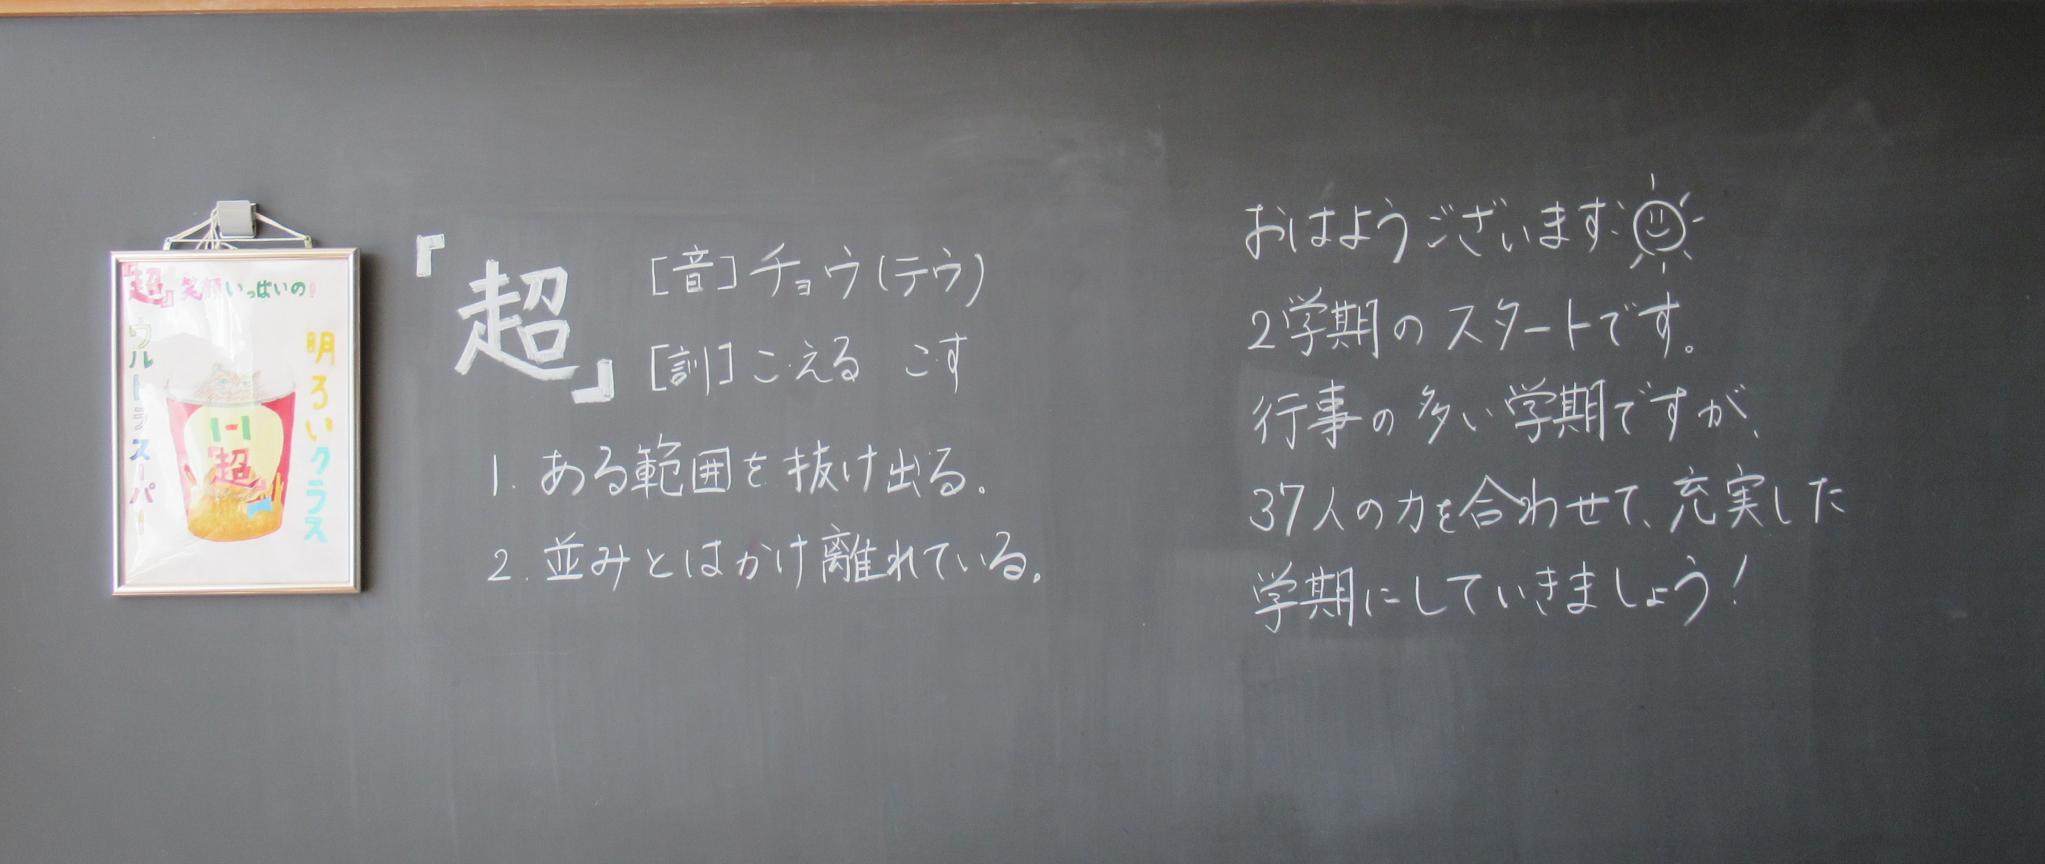 『超』笑顔いっぱいの!
ウルトラスーパー!
明ろいクラス
1-1
超
『超』
[音]チョウ(テウ)
[訓]こえる こす
1. ある範囲を抜け出る。
2. 並みとはかけ離れている。
おはようございます
2学期のスタートです。
行事の多い学期ですが、
37人の力を合わせて、充実した
学期にしていきましょう!